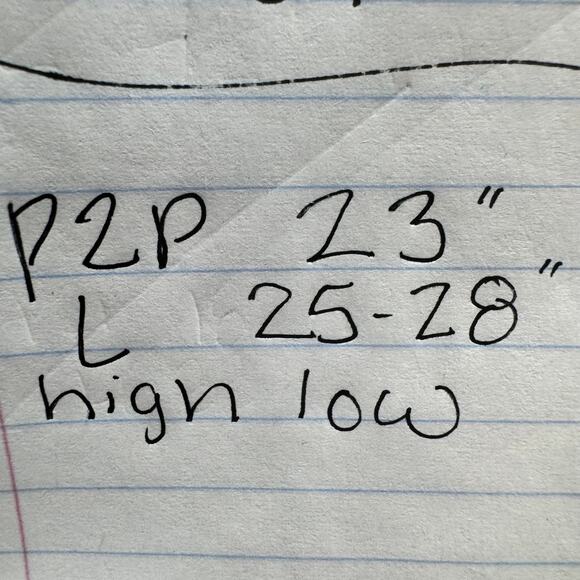 P2P 23"
L 25-28"
high low